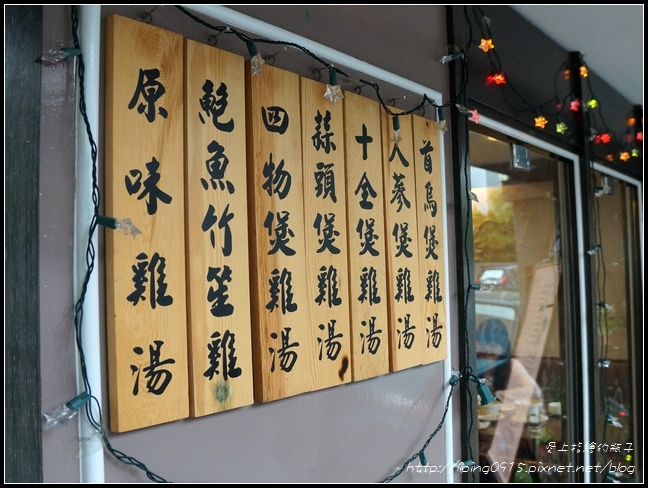 首烏煲雞湯
人蔘煲雞湯
十全煲雞湯
蒜頭煲雞湯
四物煲雞湯
鮑魚竹笙雞
原味雞湯
愛上拾繪的瓶子
http://liping0915.pixnet.net/blog